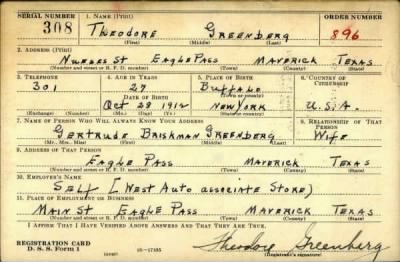 SERIAL NUMBER 1. NAME (Print) ORDER NUMBER
308 THEODORE GREENBERG 896
(First) (Middle) (Last)
2. ADDRESS (Print)
NUECES ST EAGLE PASS MAVERICK TEXAS
(Number and street or R. F. D. number) (Town) (County) (State)
3. TELEPHONE 4. AGE IN YEARS 5. PLACE OF BIRTH 6. COUNTRY OF CITIZENSHIP
301 27 BUFFALO
DATE OF BIRTH (Town or county)
OCT 28 1912 NEW YORK U.S.A.
(Exchange) (Number) (Mo.) (Day) (Yr.) (State or country)
7. NAME OF PERSON WHO WILL ALWAYS KNOW YOUR ADDRESS 8. RELATIONSHIP OF THAT PERSON
GERTRUDE BRISKMAN GREENBERG WIFE
(Mr., Mrs., Miss) (First) (Middle) (Last)
9. ADDRESS OF THAT PERSON
EAGLE PASS MAVERICK TEXAS
(Number and street or R. F. D. number) (Town) (County) (State)
10. EMPLOYER'S NAME
SELF [WEST AUTO ASSOCIATE STORE)
11. PLACE OF EMPLOYMENT OR BUSINESS
MAIN ST EAGLE PASS MAVERICK TEXAS
(Number and street or R. F. D. number) (Town) (County) (State)
I AFFIRM THAT I HAVE VERIFIED ABOVE ANSWERS AND THAT THEY ARE TRUE.
REGISTRATION CARD
D. S. S. FORM 1 16—17105 Theodore Greenberg
(Registrant's signature)